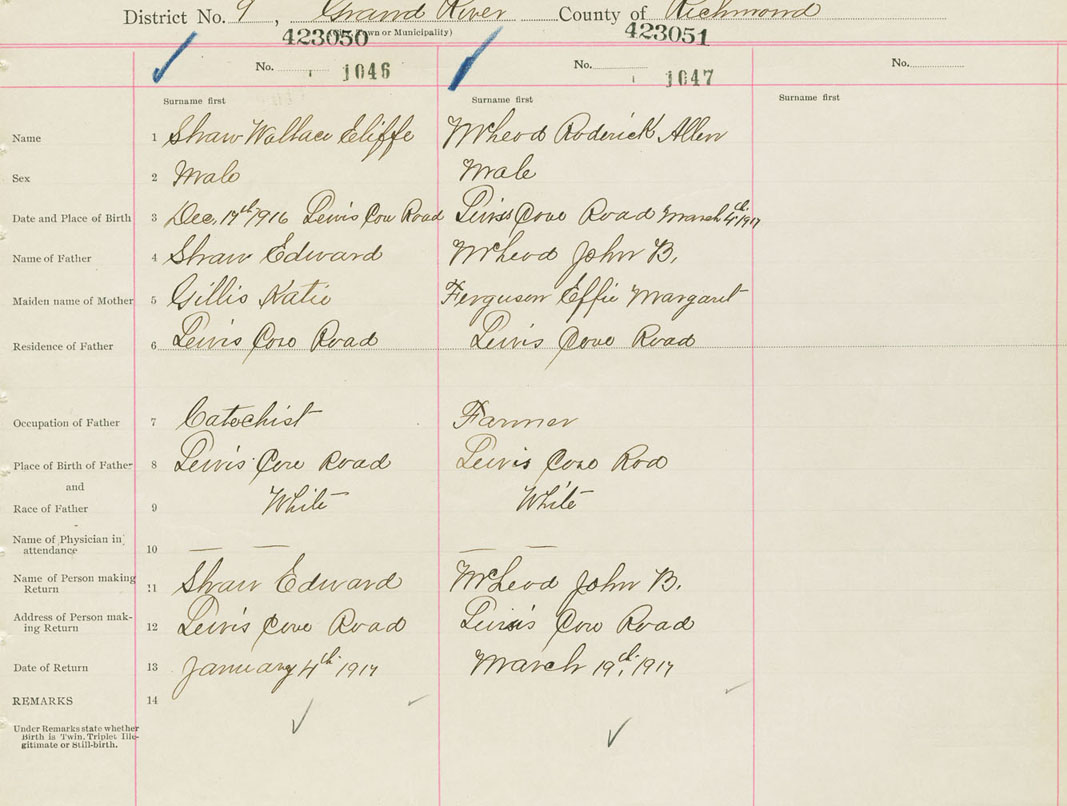 District No. 9, Grand River County of Richmond
423050 (Town or Municipality) 423051
No. 1046 No. 1047 No.
Surname first Surname first Surname first
Name 1 Shaw Wallace Eliffe McLeod Roderick Allen
Sex 2 Male Male
Date and Place of Birth 3 Dec. 17th 1916 Lewis Cove Road Lewis Cove Road March 4th 1917
Name of Father 4 Shaw Edward McLeod John B.
Maiden name of Mother 5 Gillis Katie Ferguson Effie Margaret
Residence of Father 6 Lewis Cove Road Lewis Cove Road
Occupation of Father 7 Catechist Farmer
Place of Birth of Father 8 Lewis Cove Road Lewis Cove Rod
and
Race of Father 9 White White
Name of Physician in
attendance 10 — — — —
Name of Person making
Return 11 Shaw Edward McLeod John B.
Address of Person mak-
ing Return 12 Lewis Cove Road Lewis Cove Road
Date of Return 13 January 4th 1917 March 19th, 1917
REMARKS 14
Under Remarks state whether
Birth is Twin, Triplet Ille-
gitimate or Still-birth.